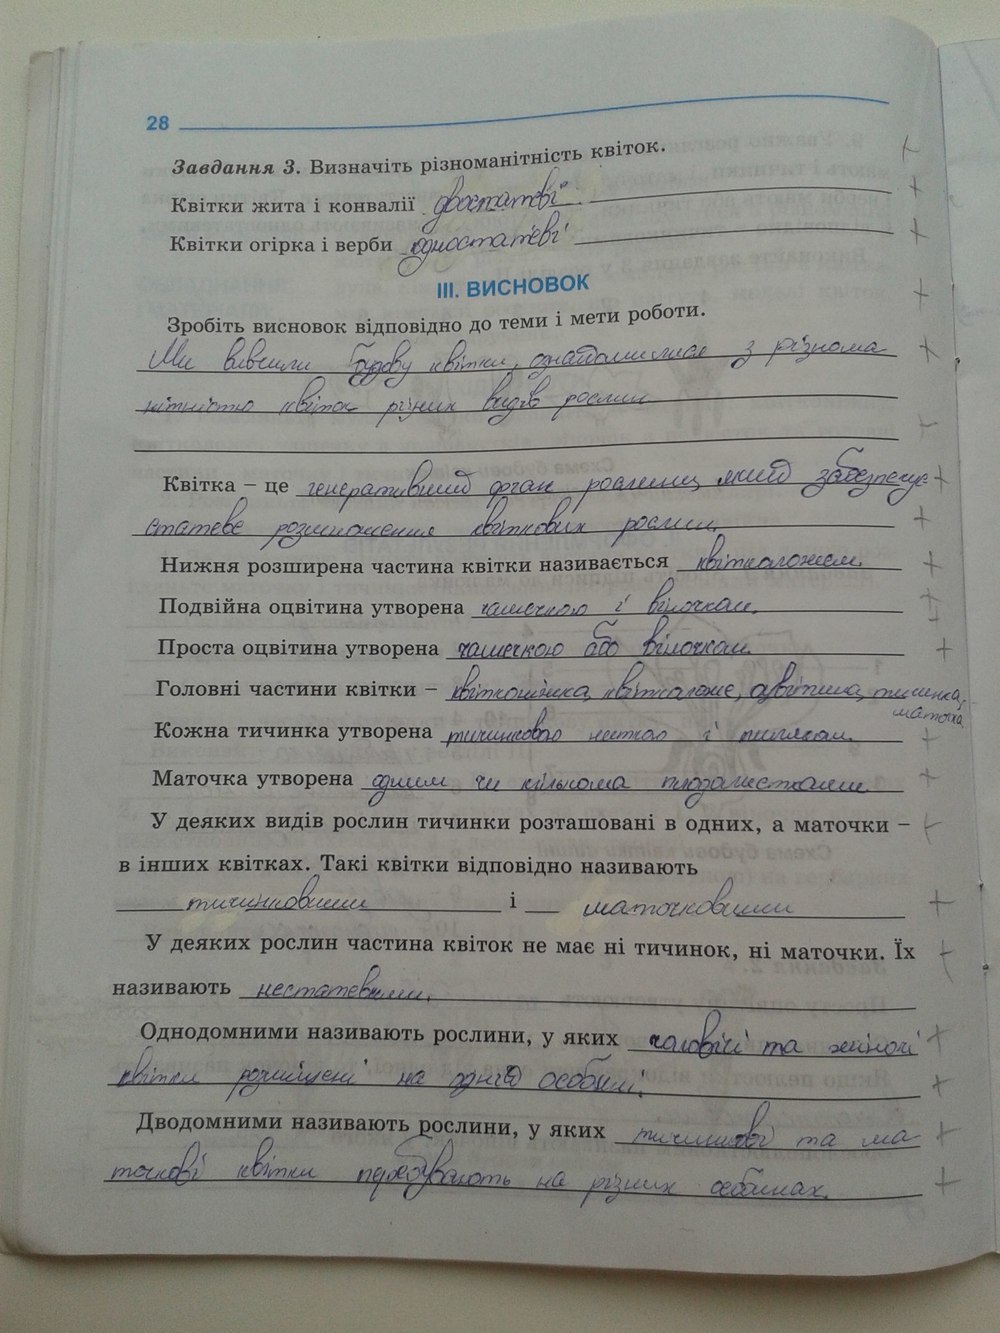 28
Завдання 3. Визначіть різноманітність квіток.
Квітки жита і конвалії двостатеві
Квітки огірка і верби одностатеві
III. ВИСНОВОК
Зробіть висновок відповідно до теми і мети роботи.
Ми вивчили будову квітки, ознайомилися з різнома
нітністю квіток різних видів рослин
Квітка – це генеративний орган рослини, який забезпечує
статеве розмноження квіткових рослин.
Нижня розширена частина квітки називається квітколожем.
Подвійна оцвітина утворена чашечкою і віночком.
Проста оцвітина утворена чашечкою або віночком.
Головні частини квітки – квітконіжка, квітколоже, оцвітина, тичинка,
маточка
Кожна тичинка утворена тичинковою ниткою і пиляком.
Маточка утворена одним чи кількома плодолистками
У деяких видів рослин тичинки розташовані в одних, а маточки –
в інших квітках. Такі квітки відповідно називають
тичинковими і маточковими
У деяких рослин частина квіток не має ні тичинок, ні маточки. Їх
називають нестатевими.
Однодомними називають рослини, у яких чоловічі та жіночі
квітки розміщені на одній особині.
Дводомними називають рослини, у яких тичинкові та ма
точкові квітки перебувають на різних особинах.